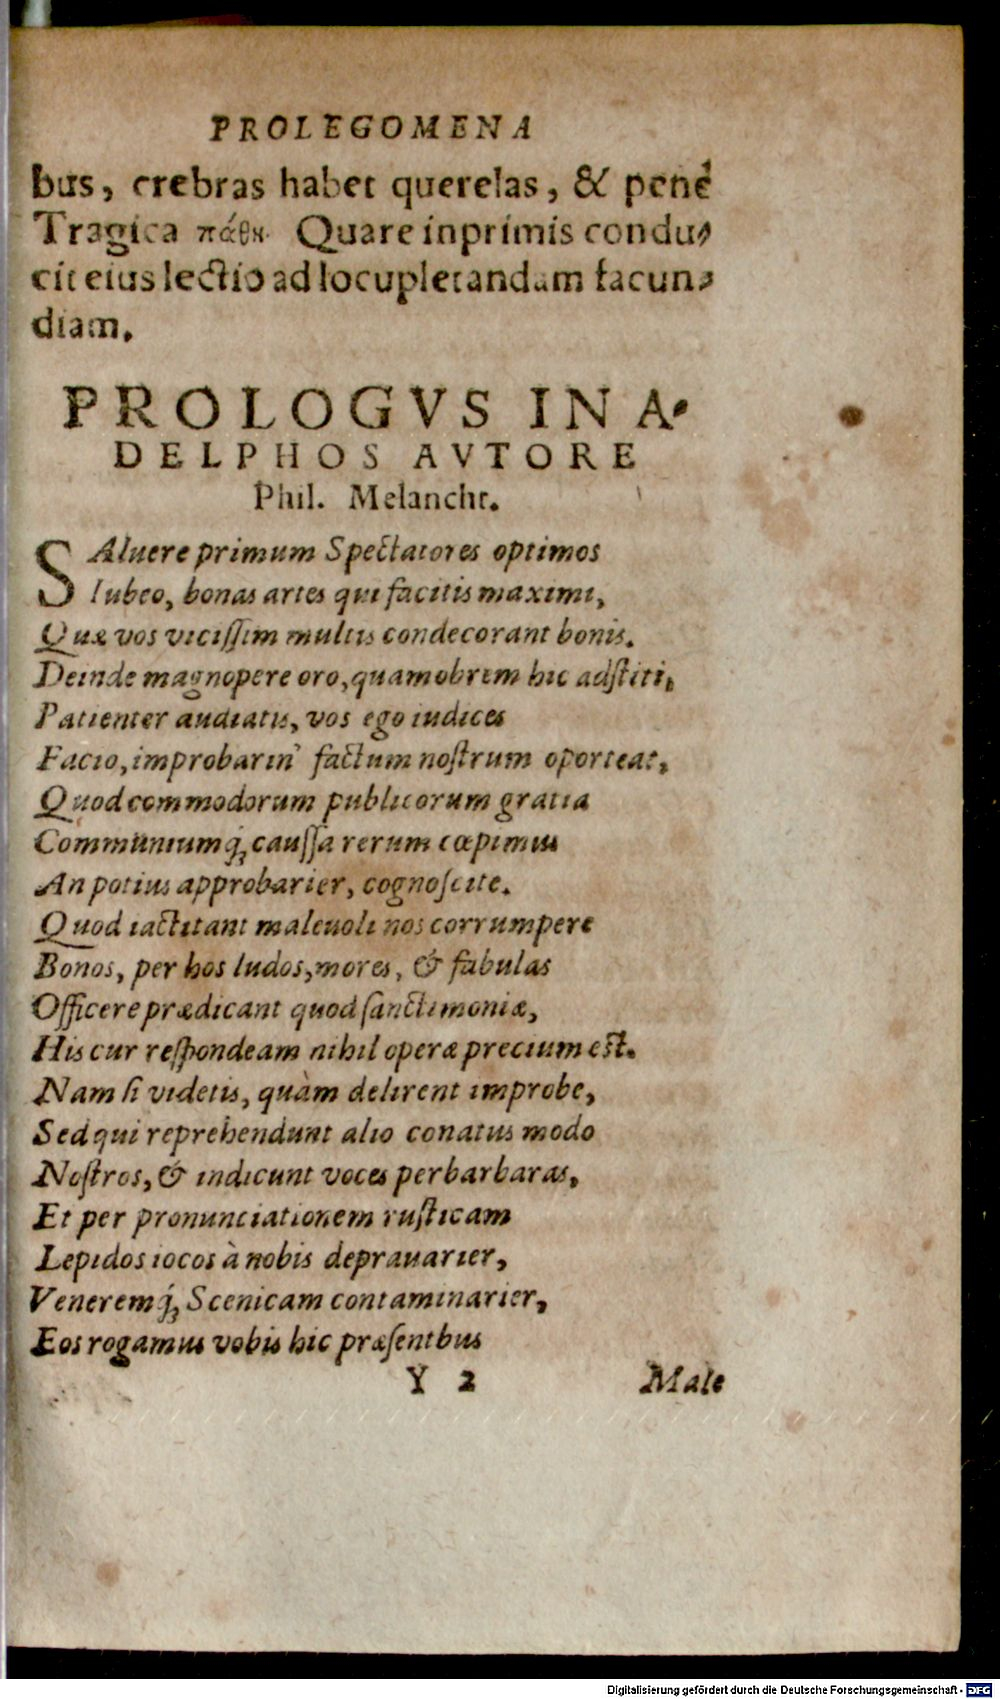 PROLEGOMENA
bus, crebras habet querelas, & penè
Tragica πάθη. Quare inprimis condu-
cit eius lectio ad locupletandam facun-
diam.
PROLOGVS IN A-
DELPHOS AVTORE
Phil. Melancht.
SAluere primum Spectatores optimos
Iubeo, bonas artes qui facitis maximi,
Quæ vos viciſſim multis condecorant bonis.
Deinde magnopere oro, quamobrem hic adſtiti,
Patienter audiatis, vos ego iudices
Facio, improbarin' factum noſtrum oporteat,
Quod commodorum publicorum gratia
Communiumq́; cauſſa rerum cœpimus
An potius approbarier, cognoſcite.
Quod iactitant maleuoli nos corrumpere
Bonos, per hos ludos, mores, & fabulas
Officere prædicant quod ſanctimoniæ,
His cur reſpondeam nihil operæ precium eſt.
Nam ſi videtis, quàm delirent improbe,
Sed qui reprehendunt alio conatus modo
Noſtros, & indicunt voces perbarbaras,
Et per pronunciationem ruſticam
Lepidos iocos à nobis deprauarier,
Veneremq́; Scenicam contaminarier,
Eos rogamus vobis hic præſentbus
Y 2 Male
Digitalisierung gefördert durch die Deutsche Forschungsgemeinschaft - DFG